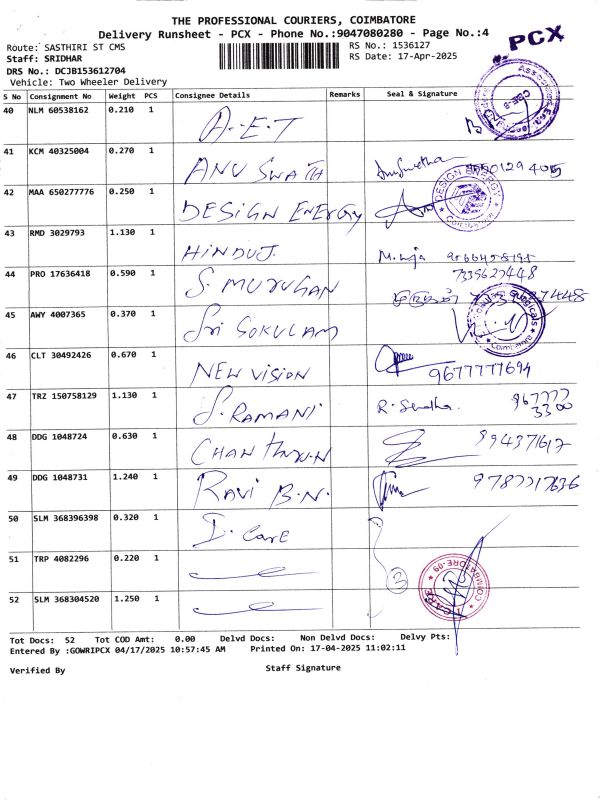 THE PROFESSIONAL COURIERS, COIMBATORE
Delivery Runsheet - PCX - Phone No.:9047080280 - Page No.:4
PCX
Route: SASTHIRI ST CMS
RS No.: 1536127
Staff: SRIDHAR
RS Date: 17-Apr-2025
DRS No.: DCJB153612704
Vehicle: Two Wheeler Delivery
S No Consignment No Weight PCS Consignee Details Remarks Seal & Signature
40 NLM 60538162 0.210 1 A.E.T
41 KCM 40325004 0.270 1 ANU SWATH Anuswetha
42 MAA 650277776 0.250 1 DESIGN ENERGY
DESIGN ENERGY
COIMBATORE
43 RMD 3029793 1.130 1 HINDUJ.
44 PRO 17636418 0.590 1 S. MURUGAN 7339627448
45 AWY 4007365 0.370 1 Sri GOKULAM
Surgicals
Coimbatore
46 CLT 30492426 0.670 1 NEW VISION 9677777694
47 TRZ 150758129 1.130 1 S. RAMANI
48 DDG 1048724 0.630 1
49 DDG 1048731 1.240 1 RAVI B.N.
50 SLM 368396398 0.320 1 I. Care
51 TRP 4082296 0.220 1 3
52 SLM 368304520 1.250 1
I CARE
COIMBATORE-09
Tot Docs: 52 Tot COD Amt: 0.00 Delvd Docs: Non Delvd Docs: Delvy Pts:
Entered By :GOWRIPCX 04/17/2025 10:57:45 AM Printed On: 17-04-2025 11:02:11
Verified By Staff Signature